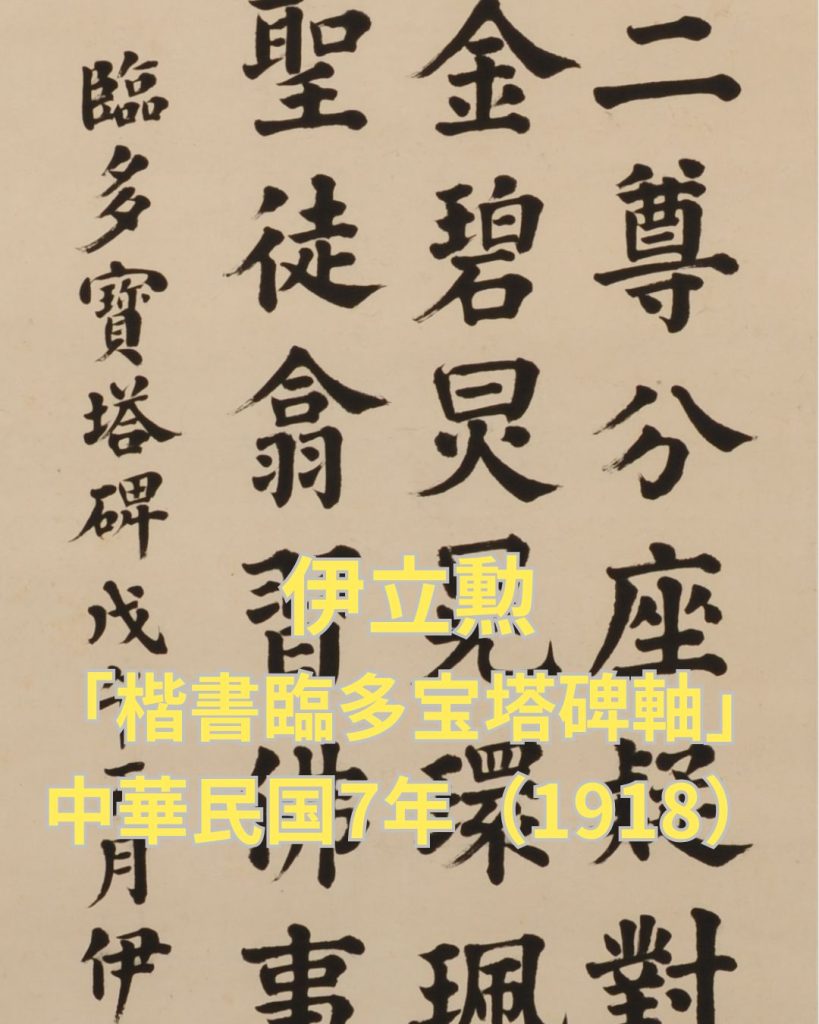 二尊分座疑對
金碧炅晃環珮
聖徒翕習佛事
臨多寶塔碑戊午月伊
伊立勲
「楷書臨多宝塔碑軸」
中華民国7年（1918）